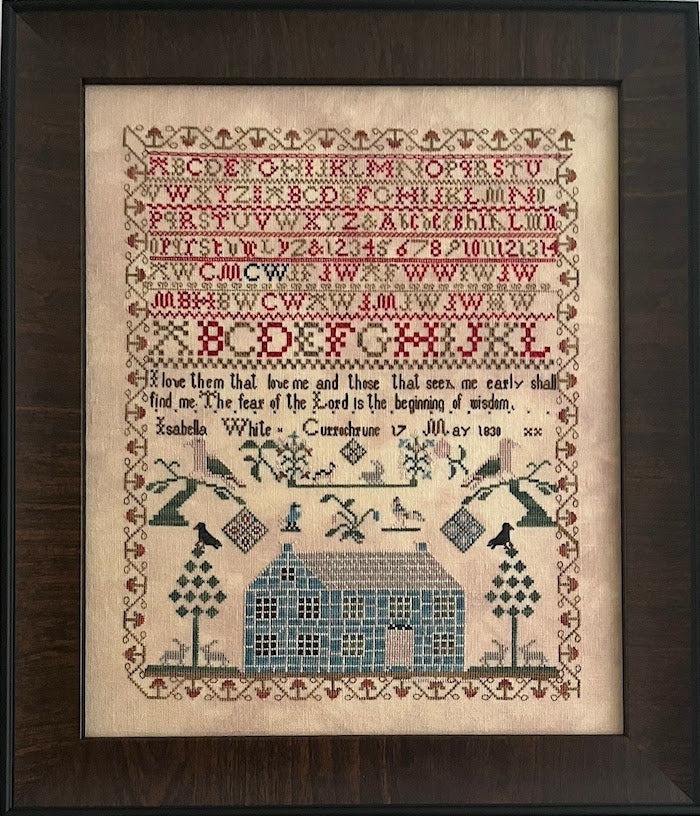 ABCDEFGHIJKLMNOPQRSTU
VWXYZ ABCDEFGHIJKLMNO
PQRSTUVWXYZ&Abcdefghiklmn
opqrstuvwxyz&1234567891011121314
AW CM CW JW WW JW JW
MBH BW CW AW JM JW JW
ABCDEFGHIJKL
I love them that love me and those that seek me early shall
find me. The fear of the Lord is the beginning of wisdom.
Isabella White Currochrune 17 May 1830 xx